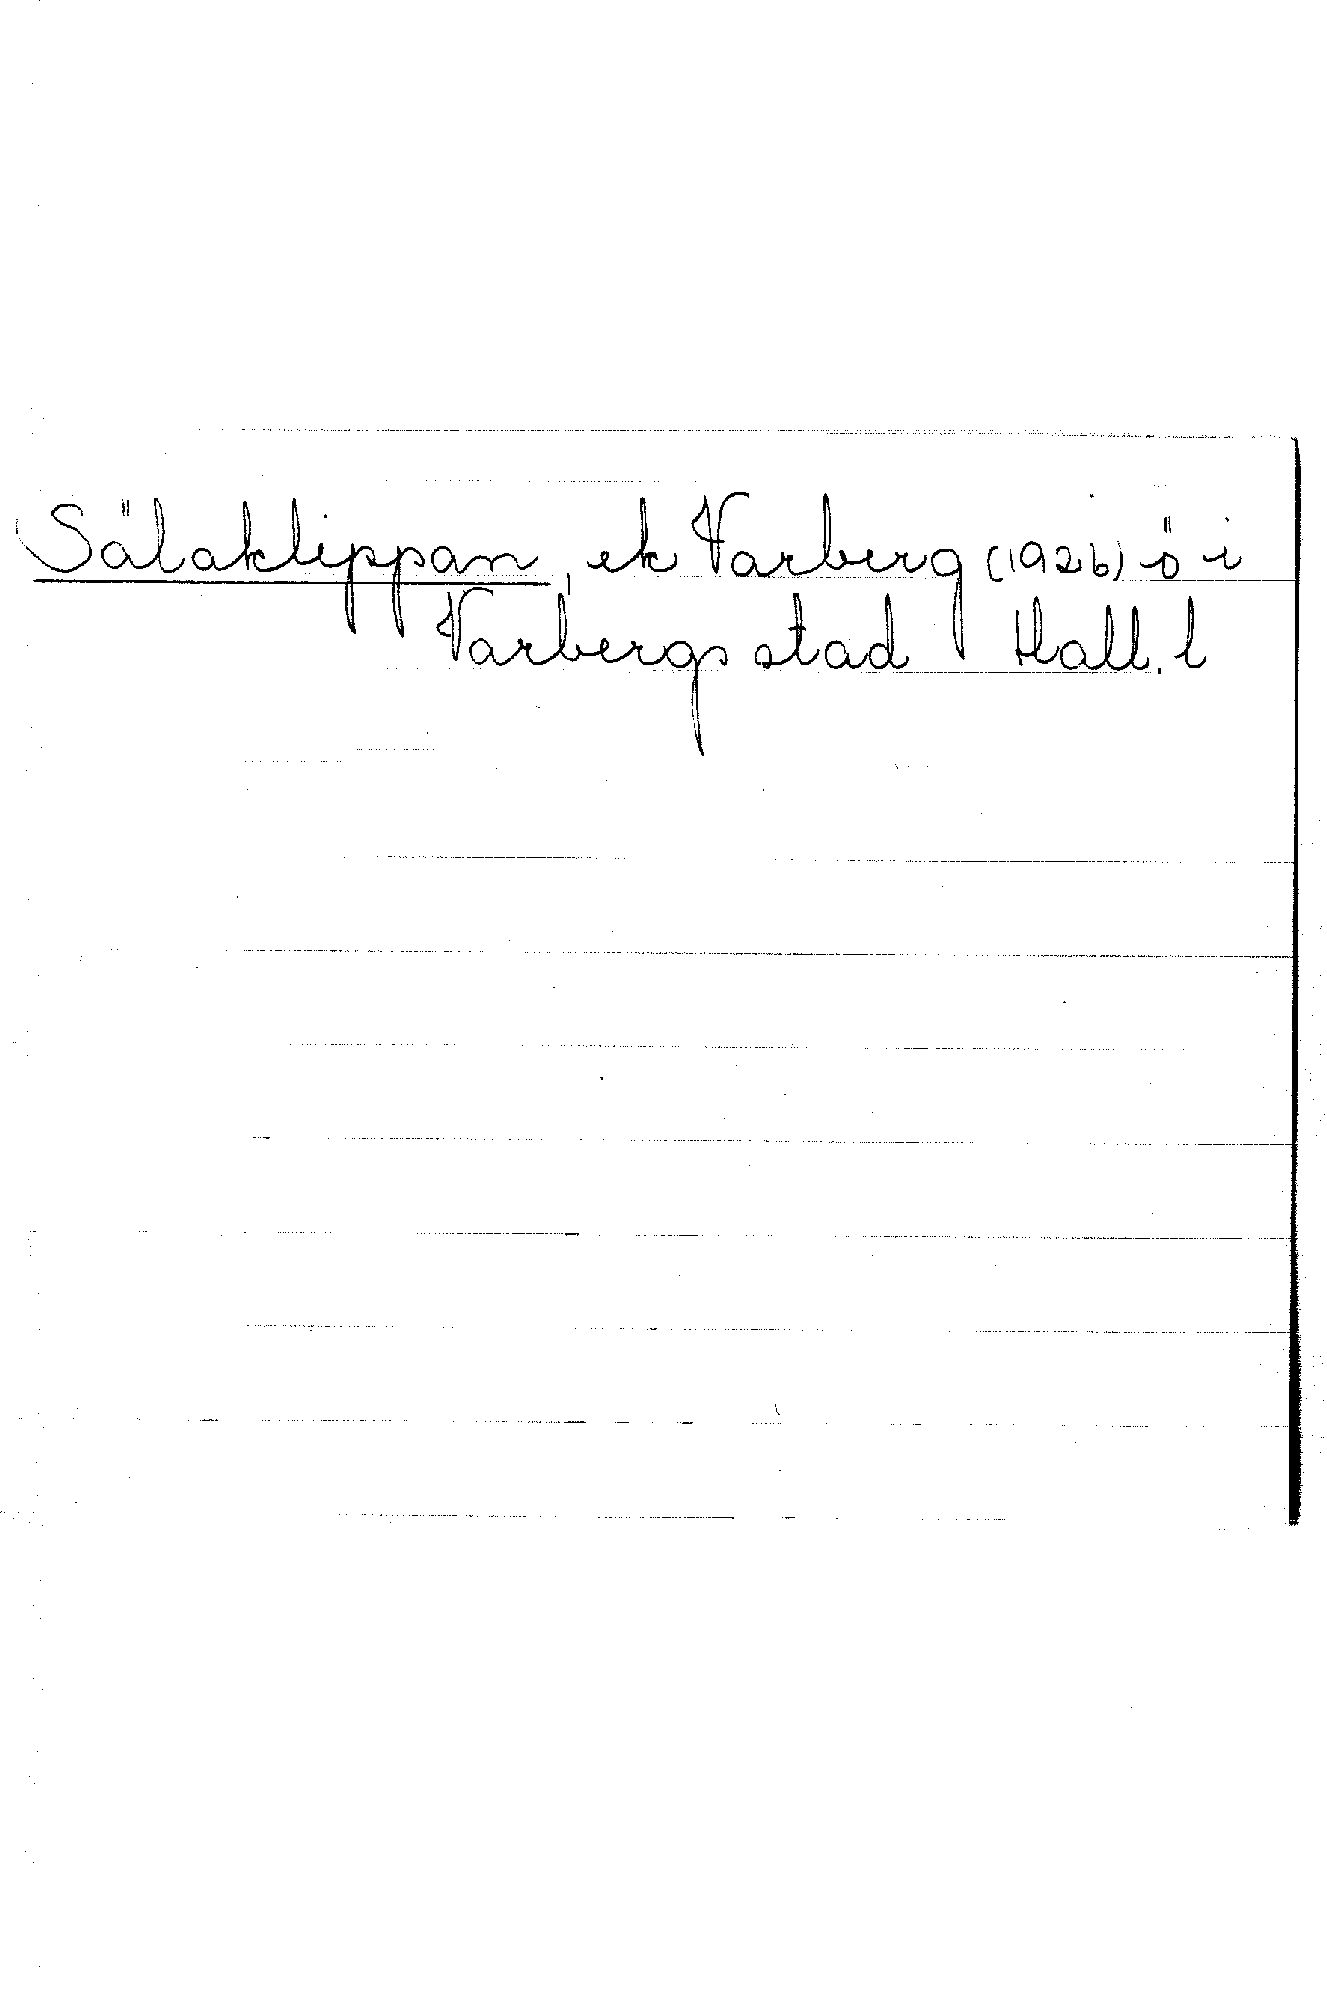 Sälaklippan, ek Varberg (1926) ö i
Varbergs stad Hall. l